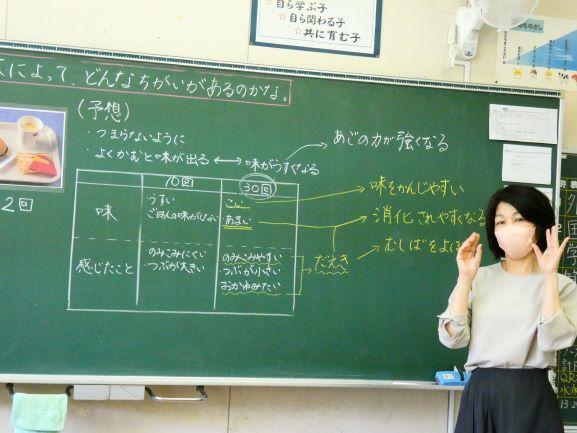 ☆自ら学ぶ子
☆自ら関わる子
☆共に育む子
によって、どんなちがいがあるのかな。
(予想)
・つまらないように
・よくかむと味が出る ↔ 味がうすくなる
あごの力が強くなる
2回
10回
30回
味
うすい
ごはんの味がしない
こい
あまい
感じたこと
・のみこみにくい
・つぶが大きい
・のみこみやすい
・つぶが小さい
おかゆみたい
だえき
味をかんじやすい
消化されやすくなる
むしばをよぼ